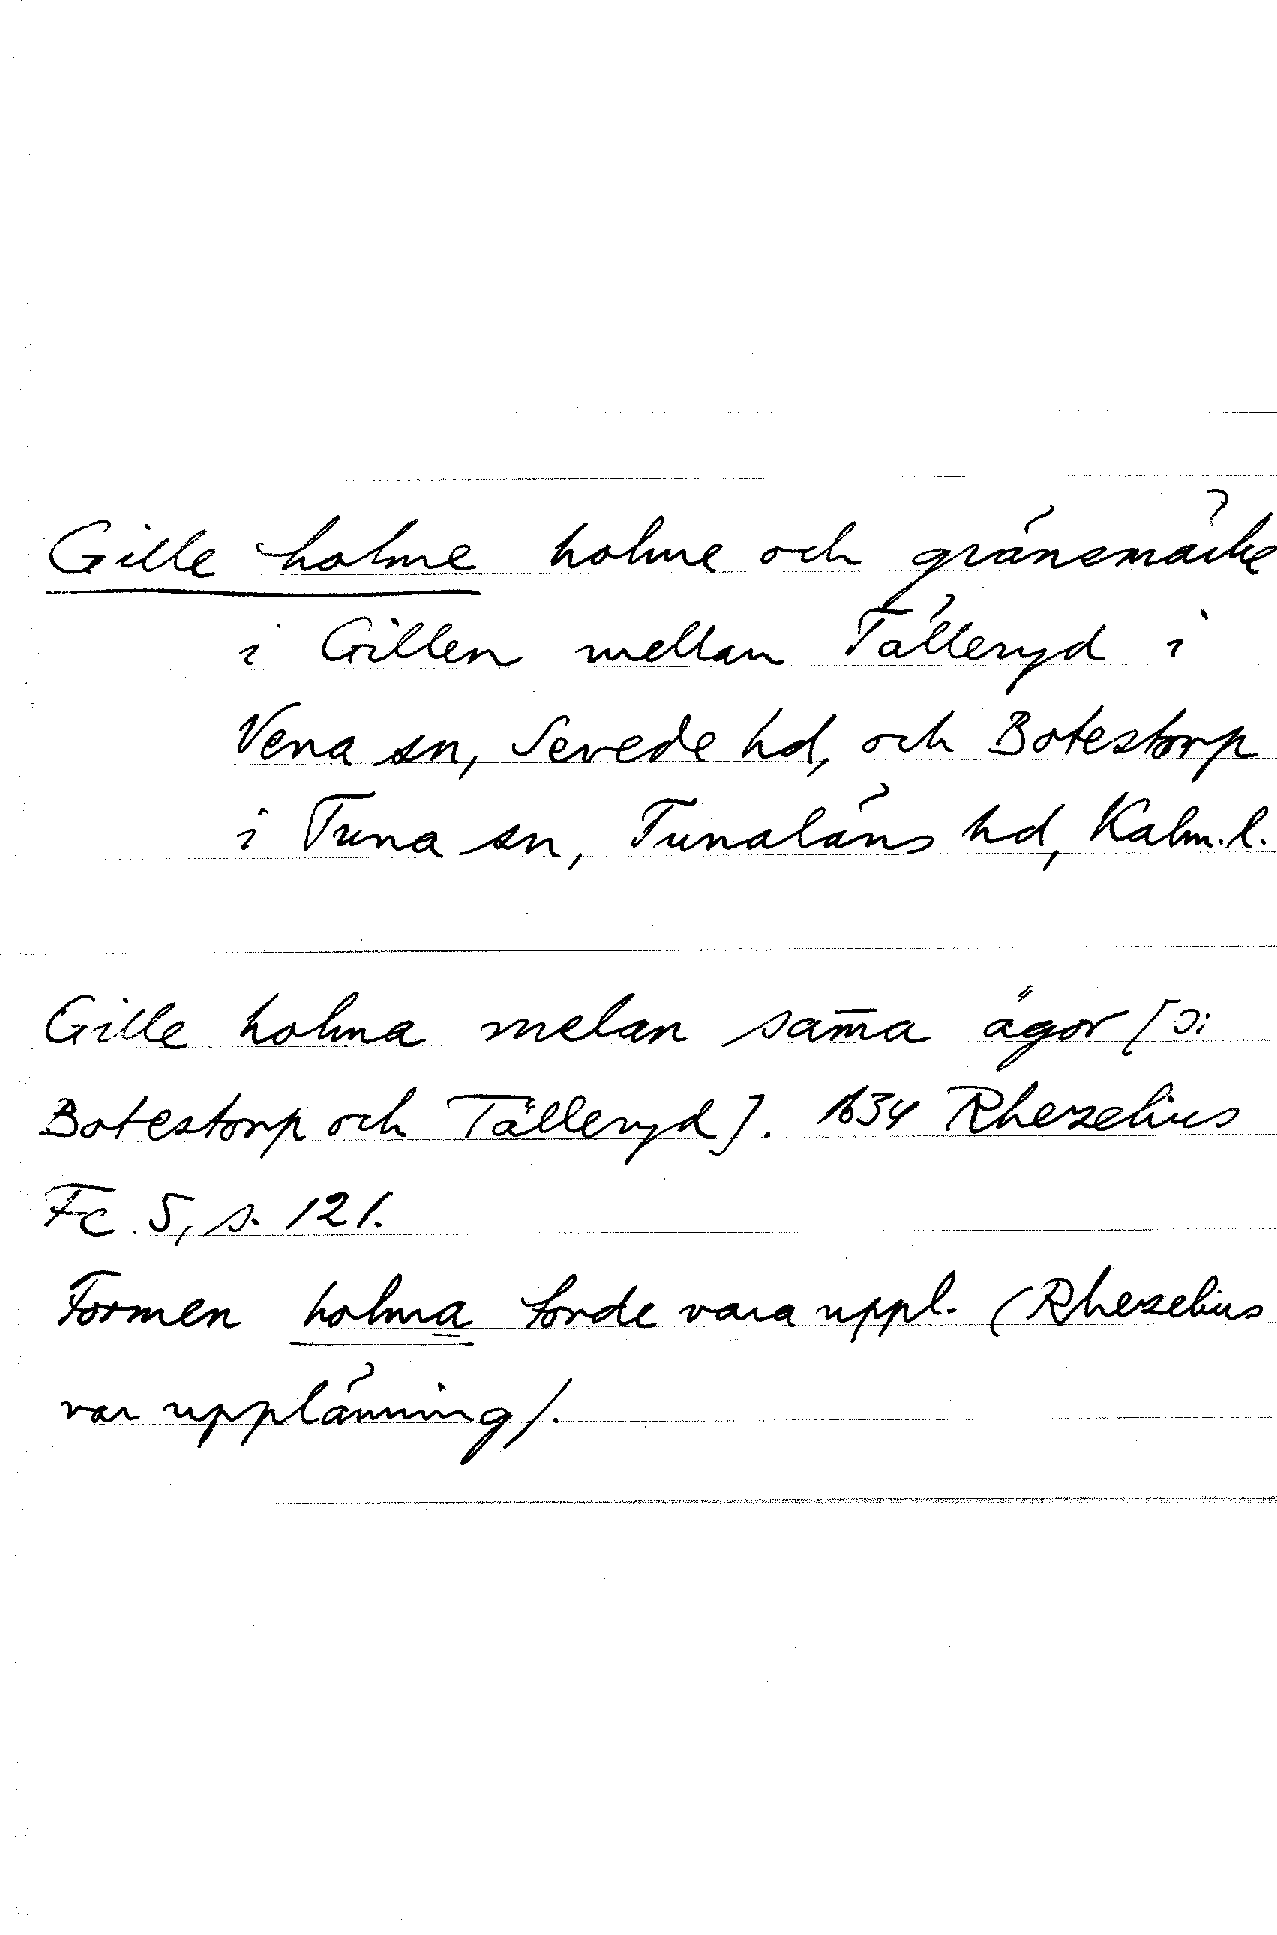 Gille holme holme och gränsmärke
i Gillen mellan Tälleryd i
Vena sn, Sevede hd, och Botestorp
i Tuna sn, Tunaläns hd, Kalm.l.
Gille holma melan sam̄a ägor [ɔ:
Botestorp och Tälleryd]. 1634 Rhezelius
Fc 5, s. 121.
Formen holma torde vara uppl. (Rhezelius
var upplänning).